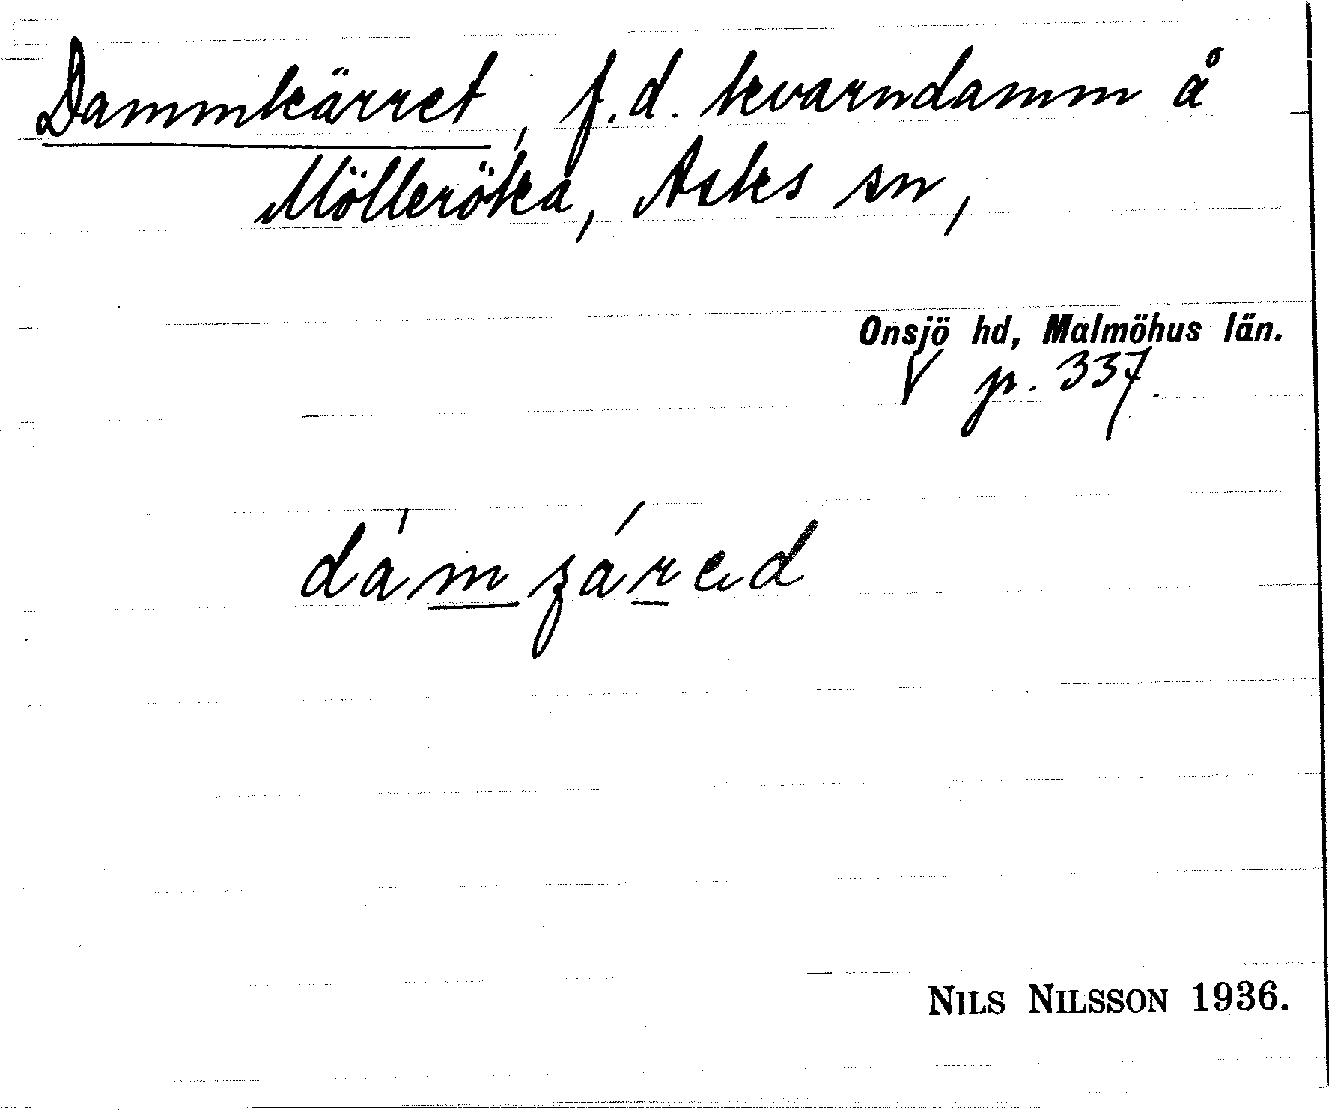 Dammkärret, f.d. kvarndamm å
Mölleröka, Asks sn,
Onsjö hd, Malmöhus län.
V p. 337.
NILS NILSSON 1936.